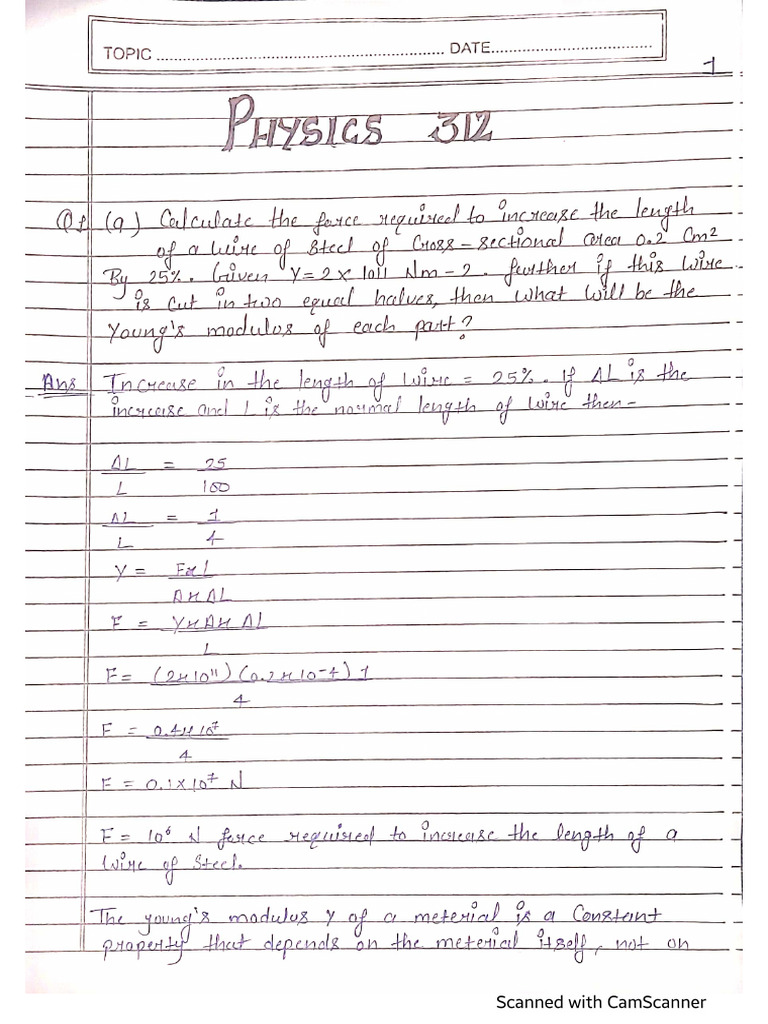 TOPIC ........................ DATE........................
1
PHYSICS 312
Q1 (a) Calculate the force required to increase the length
of a wire of steel of cross-sectional area 0.2 Cm²
By 25%. Given Y=2×1011 Nm-2. further if this wire
is cut in two equal halves, then what will be the
Young's modulus of each part?
Ans Increase in the length of wire = 25%. If ΔL is the
increase and L is the normal length of wire then-
ΔL = 25
L 100
ΔL = 1
L 4
Y = F×L
A×ΔL
F = Y×A×ΔL
L
F = (2×10¹¹) (0.2×10⁻⁴) 1
4
F = 0.4×10⁷
4
F = 0.1×10⁷ N
F = 10⁶ N force required to increase the length of a
wire of steel.
The young's modulus Y of a meterial is a constant
property that depends on the meterial itself, not on
Scanned with CamScanner